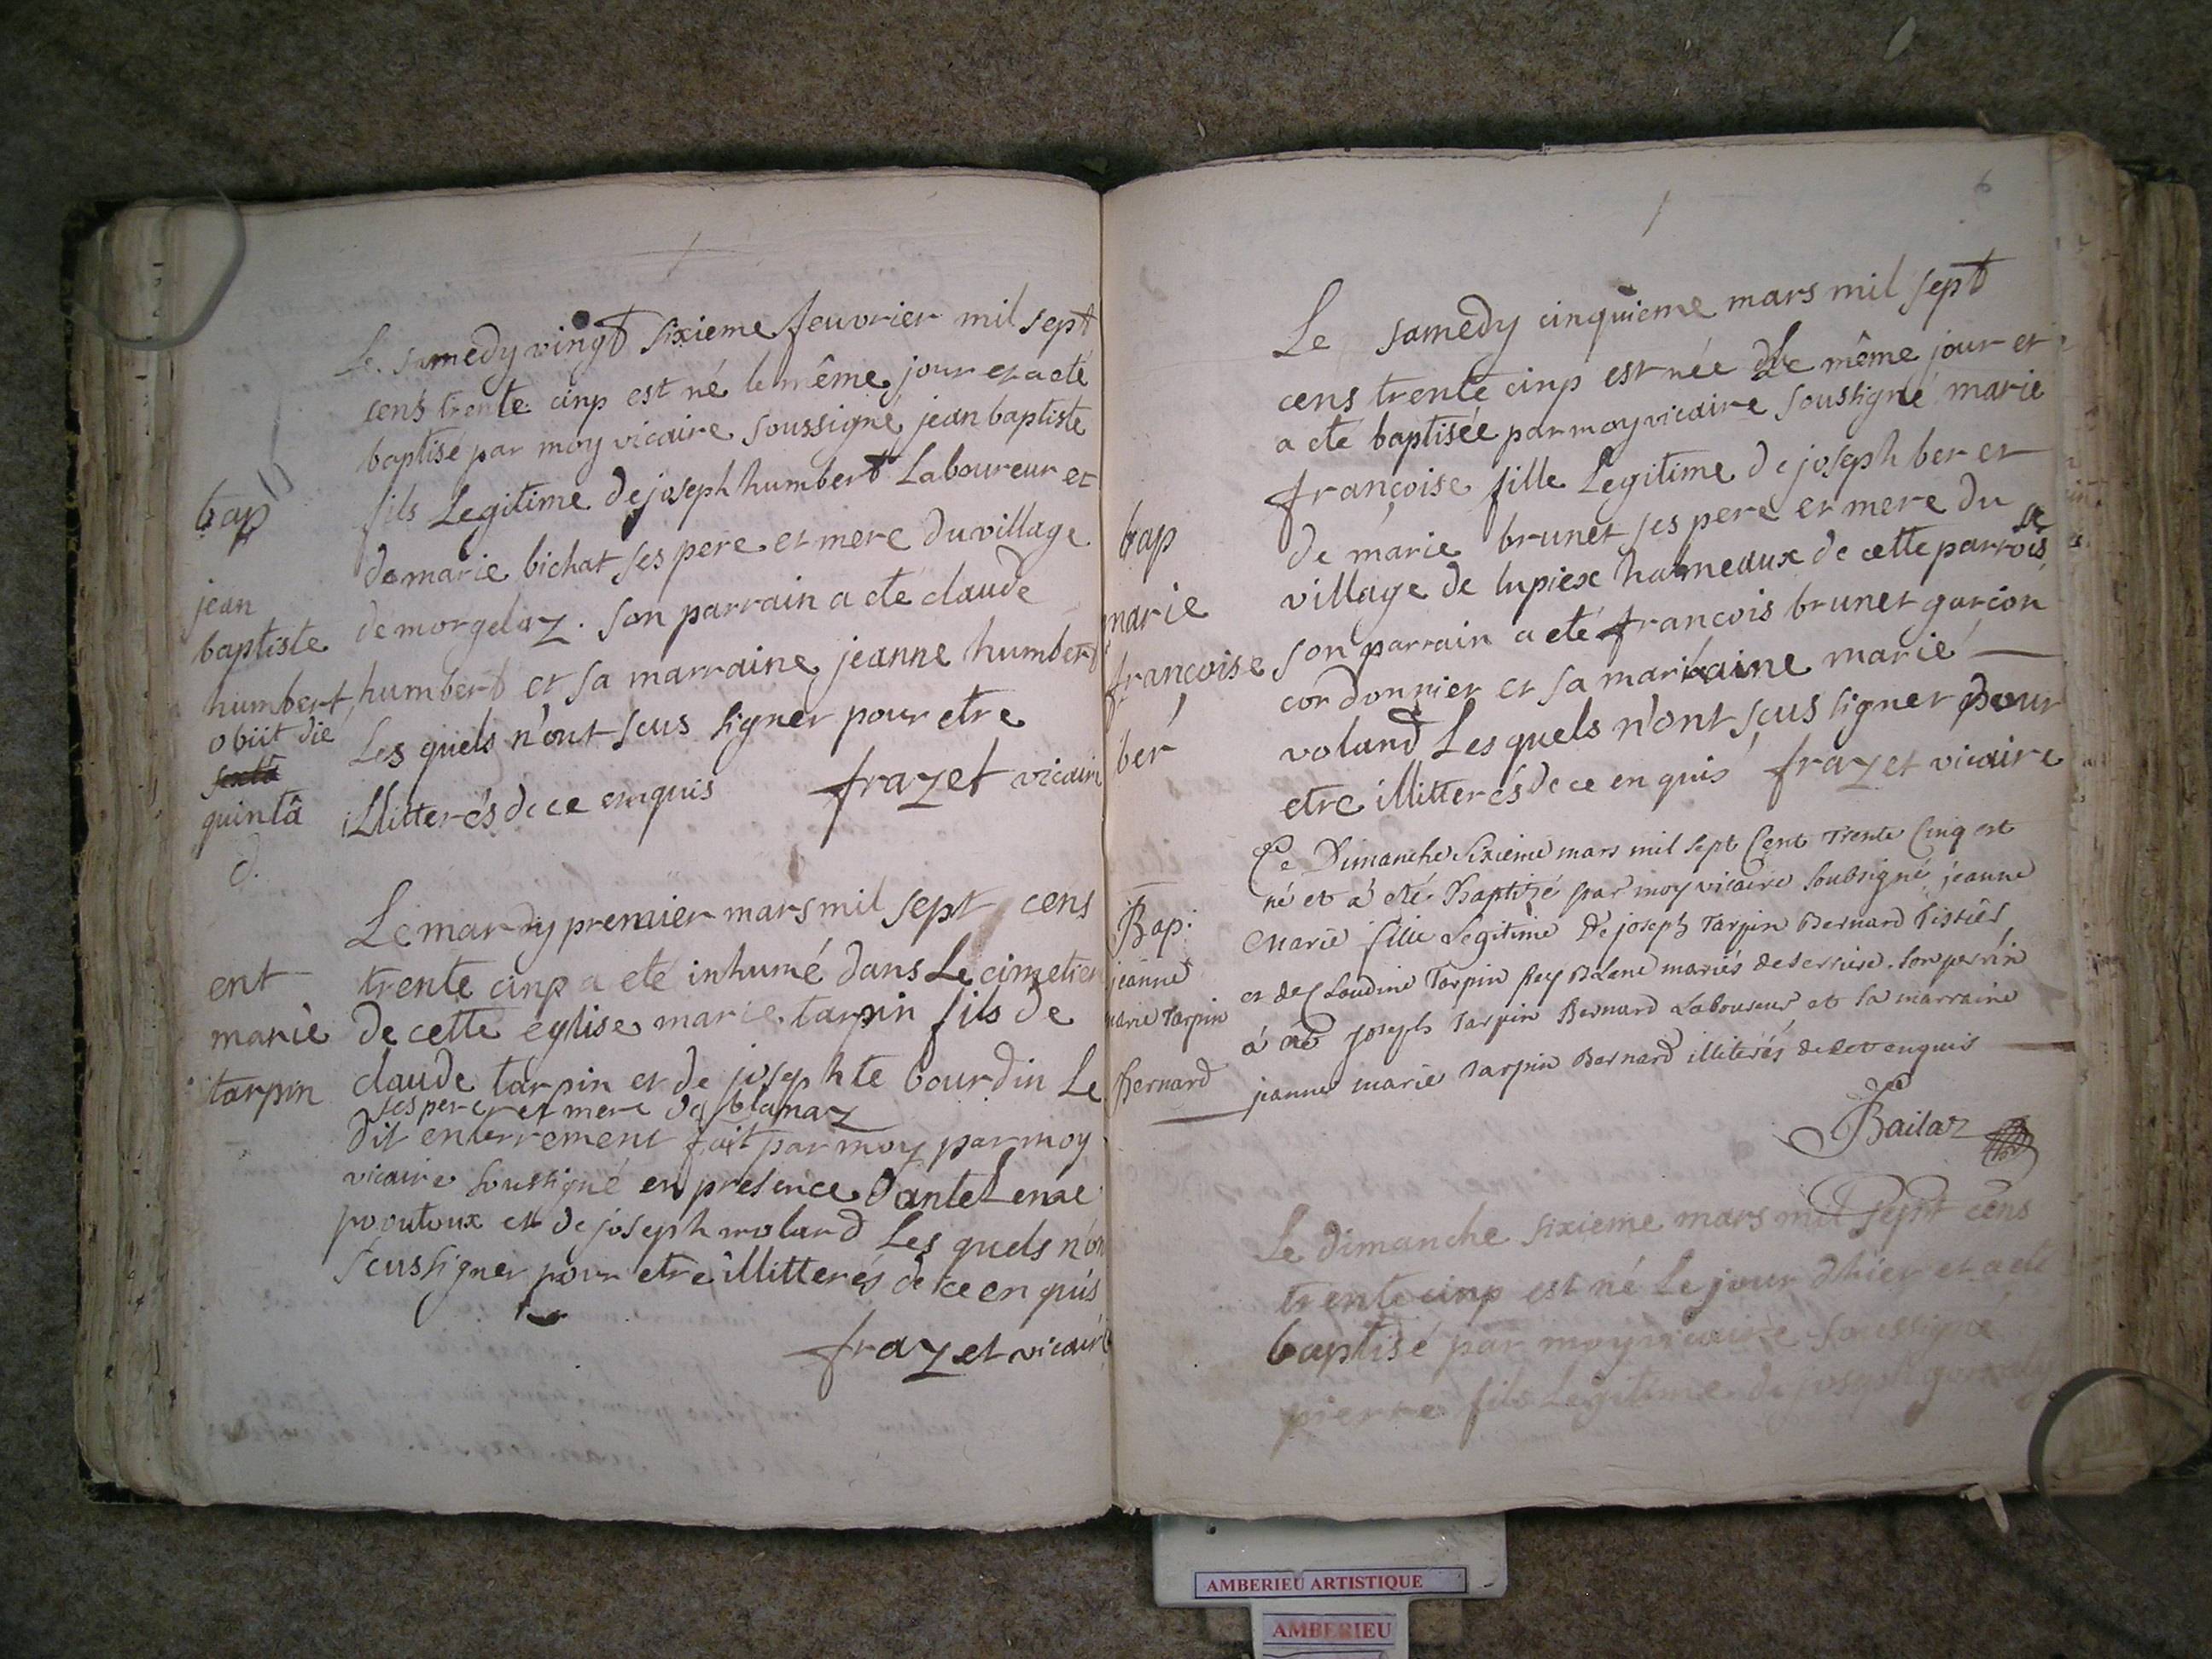 Le samedy vingt sixieme feuvrier mil sept
cens trente cinp est né le même jour et a eté
baptisé par moy vicaire soussigné jean baptiste
fils Legitime de joseph humbert Laboureur et
de marie bichat ses pere et mere du village
de morgelaz. son parrain a eté claude
humbert et sa marraine jeanne humbert
Les quels n'ont scus signer pour etre
illitterés de ce enquis frazet vicaire
bap
jean
baptiste
humbert
obiit die
sexta
quintâ
d.
Le mardy premier mars mil sept cens
trente cinp a eté inhumé dans Le cimetier
de cette eglise marie tarpin fils de
claude tarpin et de josephte bourdin Le
ses pere et mere de blanaz
dit enterrement fait par moy par moy
vicaire soussigné en presence dantelene
poutoux et de joseph molard Les quels n'on
scus signer pour etre illitterés de ce en quis
frazet vicaire
ent
marie
tarpin
6
Le samedy cinquieme mars mil sept
cens trente cinp est née le même jour et
a eté baptisée par moy vicaire soussigné marie
françoise fille Legitime de joseph ber et
de marie brunet ses pere et mere du
village de lupiex hameaux de cette parrois
se
son parrain a eté francois brunet garcon
cordonnier et sa marraine marie
voland Les quels n'ont scus signer pour
etre illitterés de ce en quis frazet vicaire
bap
marie
françoise
ber
Le Dimanche Sixieme mars mil sept Cent Trente Cinq est
né et à eté Baptizé par moy vicaire soubsigné jeanne
Marie fille Legitime De joseph Tarpin Bernard Tissier
et de Claudine Tarpin mariés de son parrin
à eté joseph Tarpin Bernard Laboureur et sa marraine
jeanne marie Tarpin Bernard illiterés de ce enquis
Bailaz
Bap:
jeanne
marie Tarpin
Bernard
Le dimanche sixieme mars mil sept cens
trente cinp est né Le jour dhier et a eté
baptisé par moy vicaire soussigné
pierre fils Legitime de joseph
AMBERIEU ARTISTIQUE
AMBERIEU